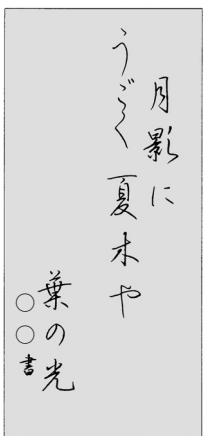 月影に
うごく夏木や
葉の光
○○書